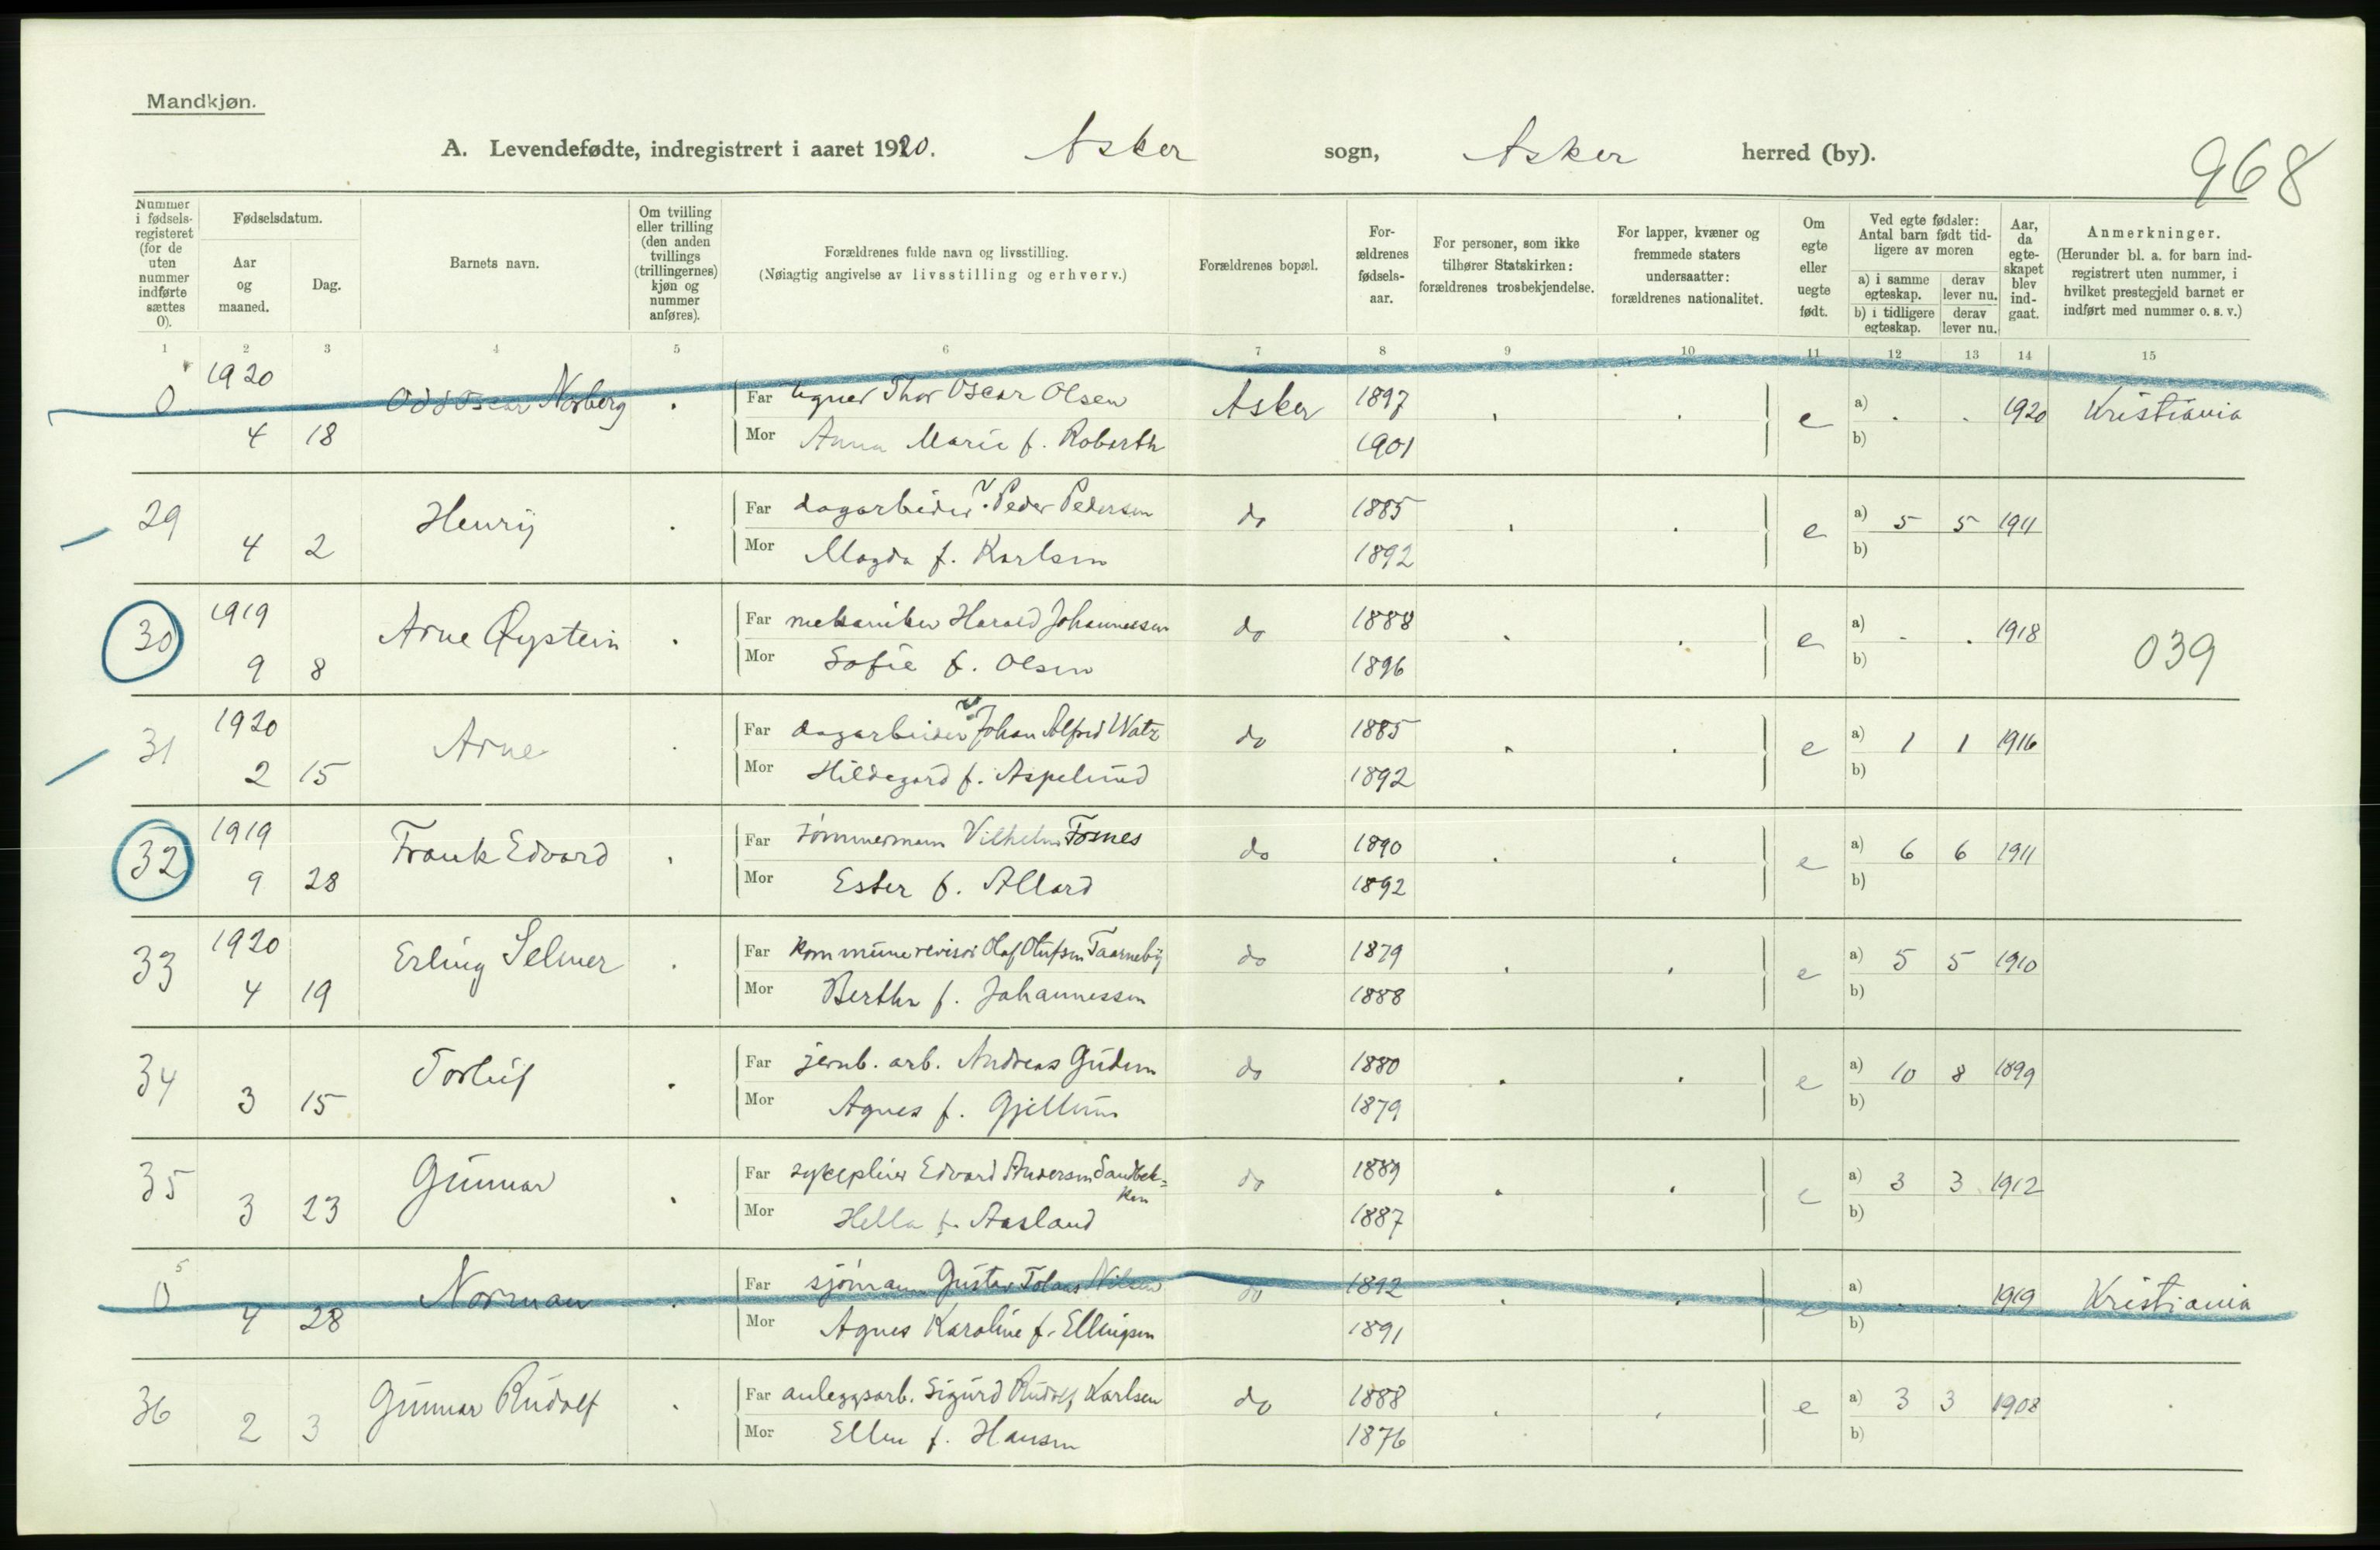 Mandkjøn.
A. Levendefødte, indregistrert i aaret 1920. Asker sogn, Asker herred (by).
968
Nummer i fødsels-registeret (for de uten nummer indførte sættes 0).
Fødselsdatum.
Aar og maaned.
Dag.
Barnets navn.
Om tvilling eller trilling (den anden tvillings (trillingernes) kjøn og nummer anføres).
Forældrenes fulde navn og livsstilling.
(Nøiagtig angivelse av livsstilling og erhverv.)
Forældrenes bopæl.
For-ældrenes fødsels-aar.
For personer, som ikke tilhører Statskirken: forældrenes trosbekjendelse.
For lapper, kvæner og fremmede staters undersaatter: forældrenes nationalitet.
Om egte eller uegte født.
Ved egte fødsler: Antal barn født tid-ligere av moren
a) i samme egteskap.
derav lever nu.
b) i tidligere egteskap.
derav lever nu.
Aar, da egte-skapet blev ind-gaat.
Anmerkninger.
(Herunder bl. a. for barn ind-registrert uten nummer, i hvilket prestegjeld barnet er indført med nummer o. s. v.)
1 2 3 4 5 6 7 8 9 10 11 12 13 14 15
0 1920 4 18 Odd Oscar Norberg . Far tegner Thor Oscar Olsen Asker 1897 . . e a) . . 1920 Kristiania
Mor Anna Marie f. Roberth 1901 b)
29 4 2 Henry . Far dagarbeider v. Peder Pedersen do 1885 . . e a) 5 5 1911
Mor Magda f. Karlsen 1892 b)
30 1919 9 8 Arne Øystein . Far mekaniker Harald Johannessen do 1888 . . e a) . . 1918 039
Mor Sofie f. Olsen 1896 b)
31 1920 2 15 Arne . Far dagarbeider v. Johan Alfred Watz do 1885 . . e a) 1 1 1916
Mor Hildegard f. Aspelund 1892 b)
32 1919 9 28 Frank Edvard . Far tømmermann Vilhelm Fosnes do 1890 . . e a) 6 6 1911
Mor Ester f. Allard 1892 b)
33 1920 4 19 Erling Selmer . Far kommunerevisor Olaf Olufsen Taarneby do 1879 . . e a) 5 5 1910
Mor Berthe f. Johannessen 1888 b)
34 3 15 Torleif . Far jernb. arb. Andreas Gudem do 1880 . . e a) 10 8 1899
Mor Agnes f. Gjellum 1879 b)
35 3 23 Gunnar . Far sykepleier Edvard Andersen Sandbek=
ken do 1889 . . e a) 3 3 1912
Mor Hella f. Aasland 1887 b)
0 4 28 Norman . Far sjömann Gustav Tobias Nilsen do 1892 . . e a) . . 1919 Kristiania
Mor Agnes Karoline f. Ellingsen 1891 b)
36 2 3 Gunnar Rudolf . Far anleggsarb. Sigurd Rudolf Karlsen do 1888 . . e a) 3 3 1908
Mor Ellen f. Hansen 1876 b)